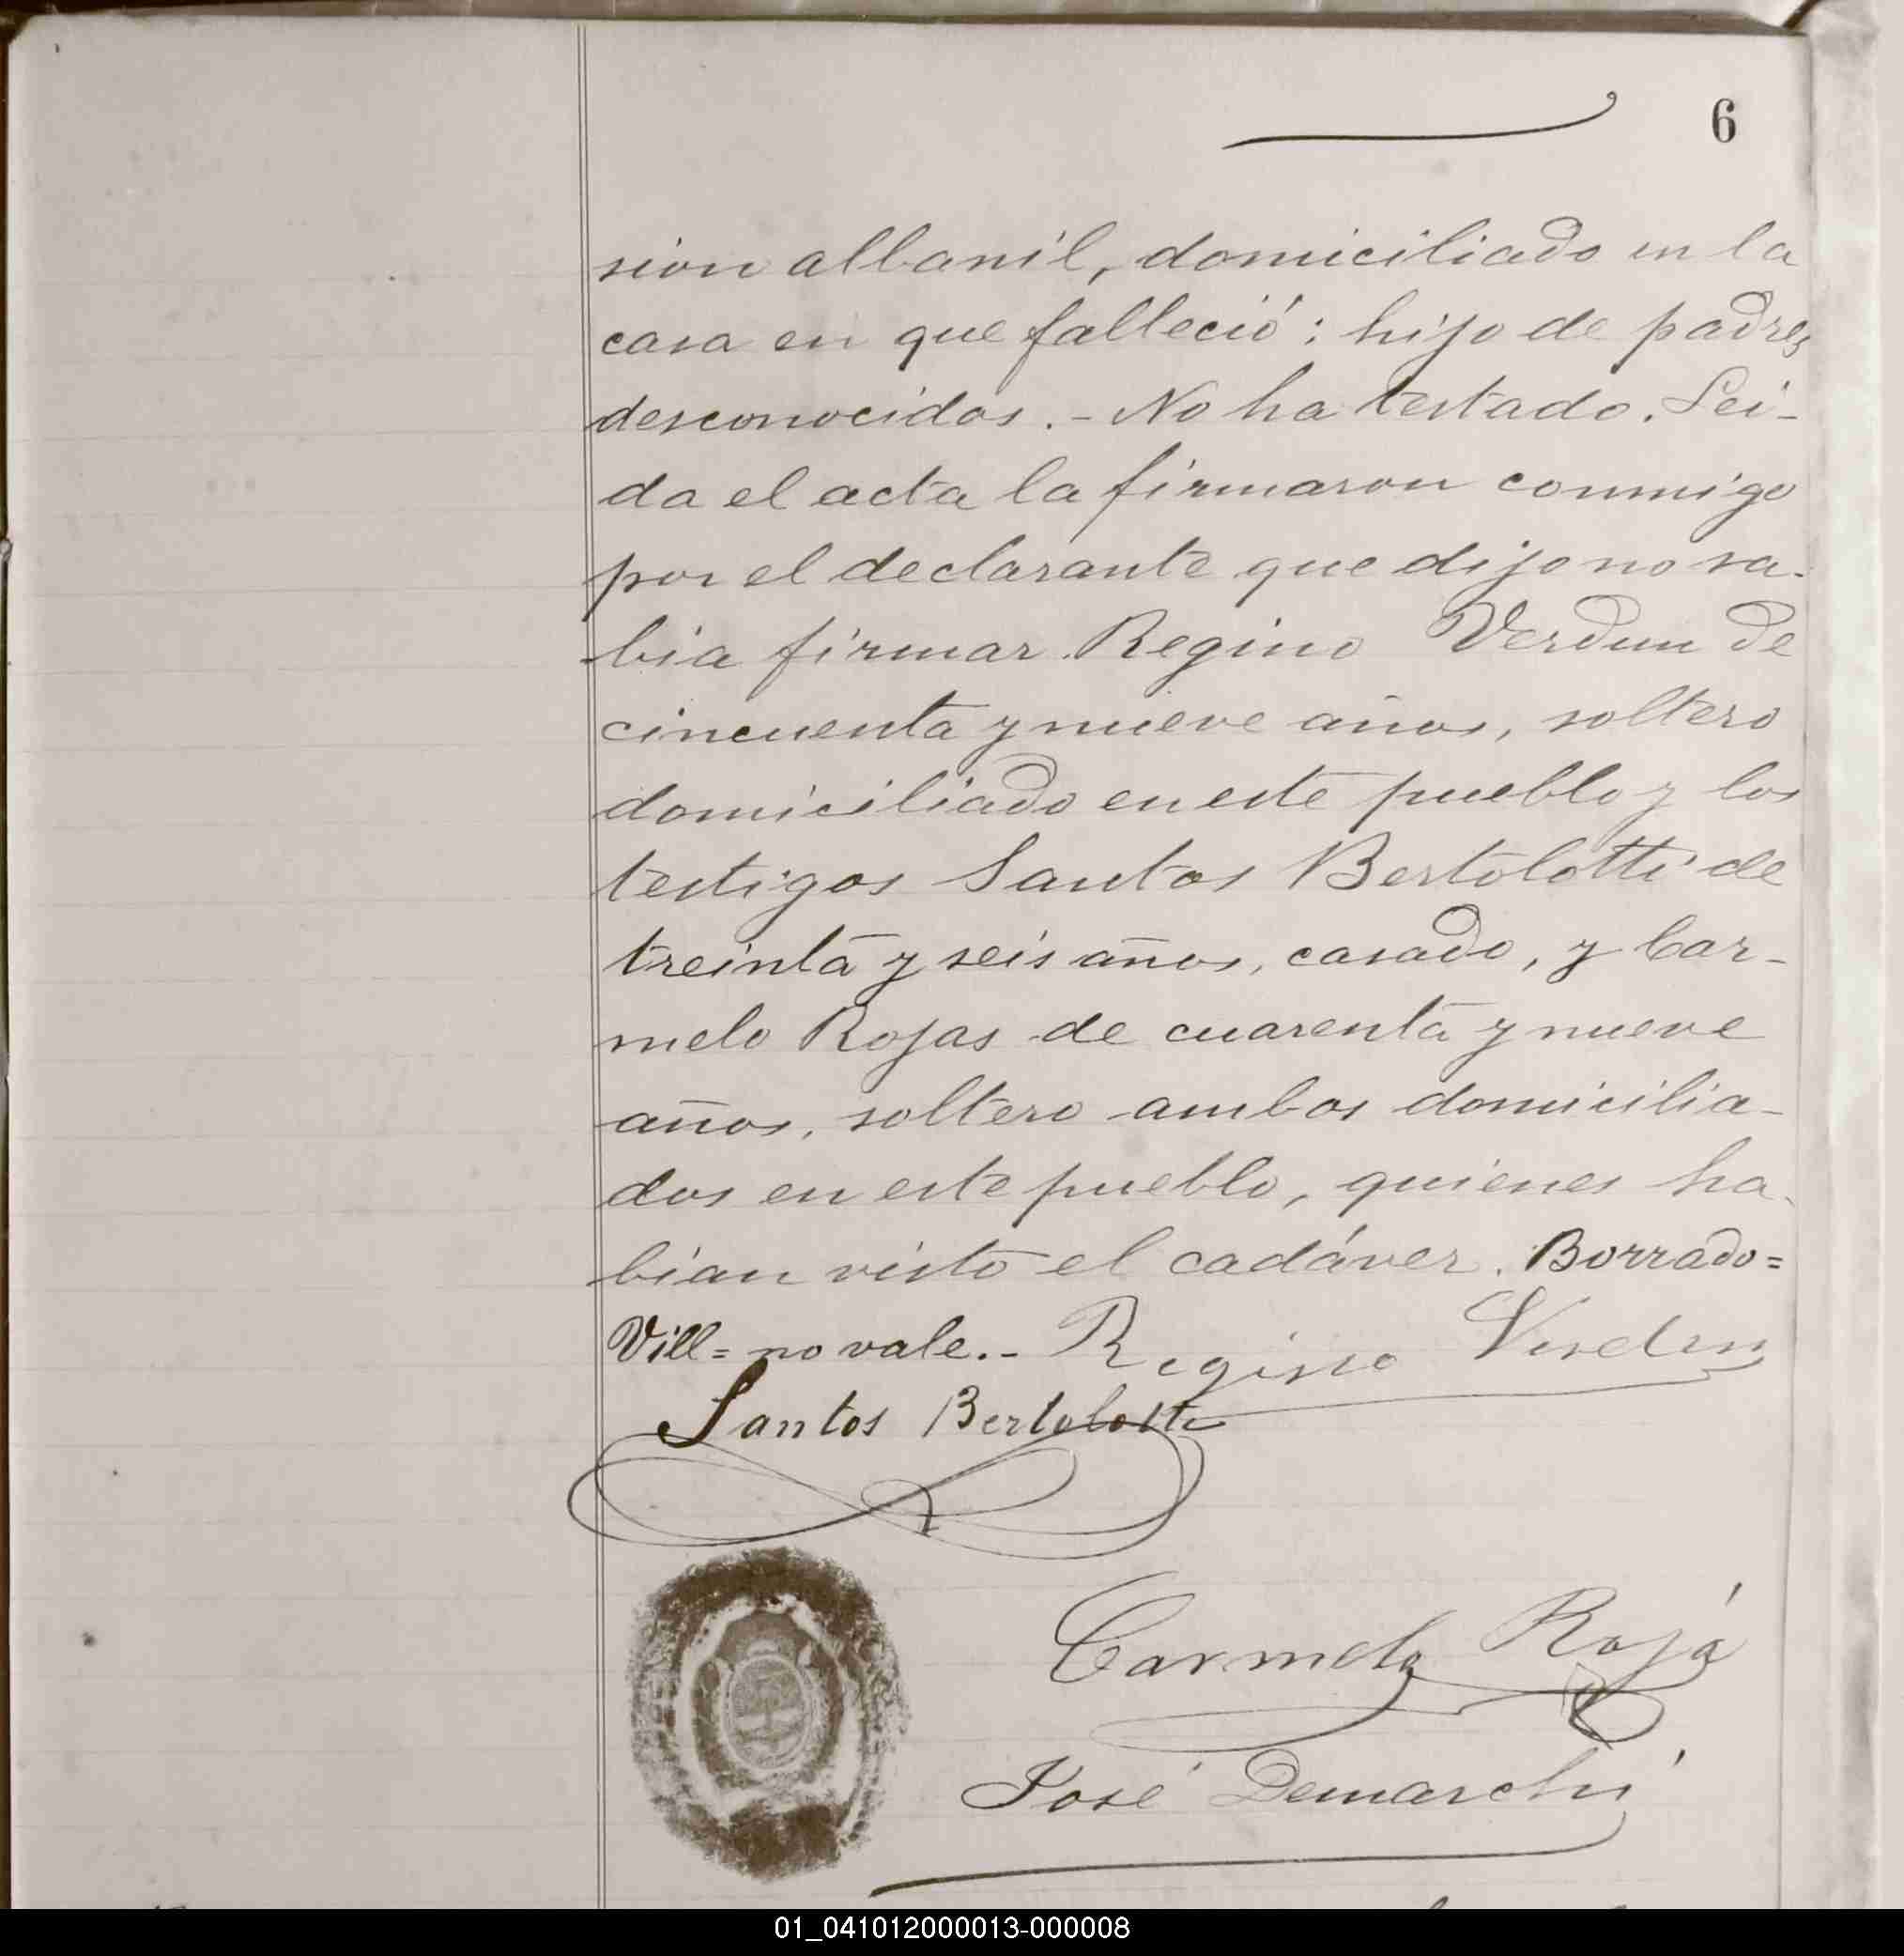 6
sion albanil, domiciliado en la
casa en que falleció: hijo de padres
desconocidos.- No ha testado. Lei-
da el acta la firmaron conmigo
por el declarante que dijo no sa-
bia firmar Regino Verdun de
cincuenta y nueve años, soltero
domiciliado en este pueblo y los
testigos Santos Bertolotti de
treinta y seis años, casado, y Car-
melo Rojas de cuarenta y nueve
años, soltero ambos domicilia-
dos en este pueblo, quienes ha-
bian visto el cadáver. Borrado=
Vill= no vale.- Regino Verdun
Santos Bertolotti
Carmelo Roja
José Demarchi
01_041012000013-000008